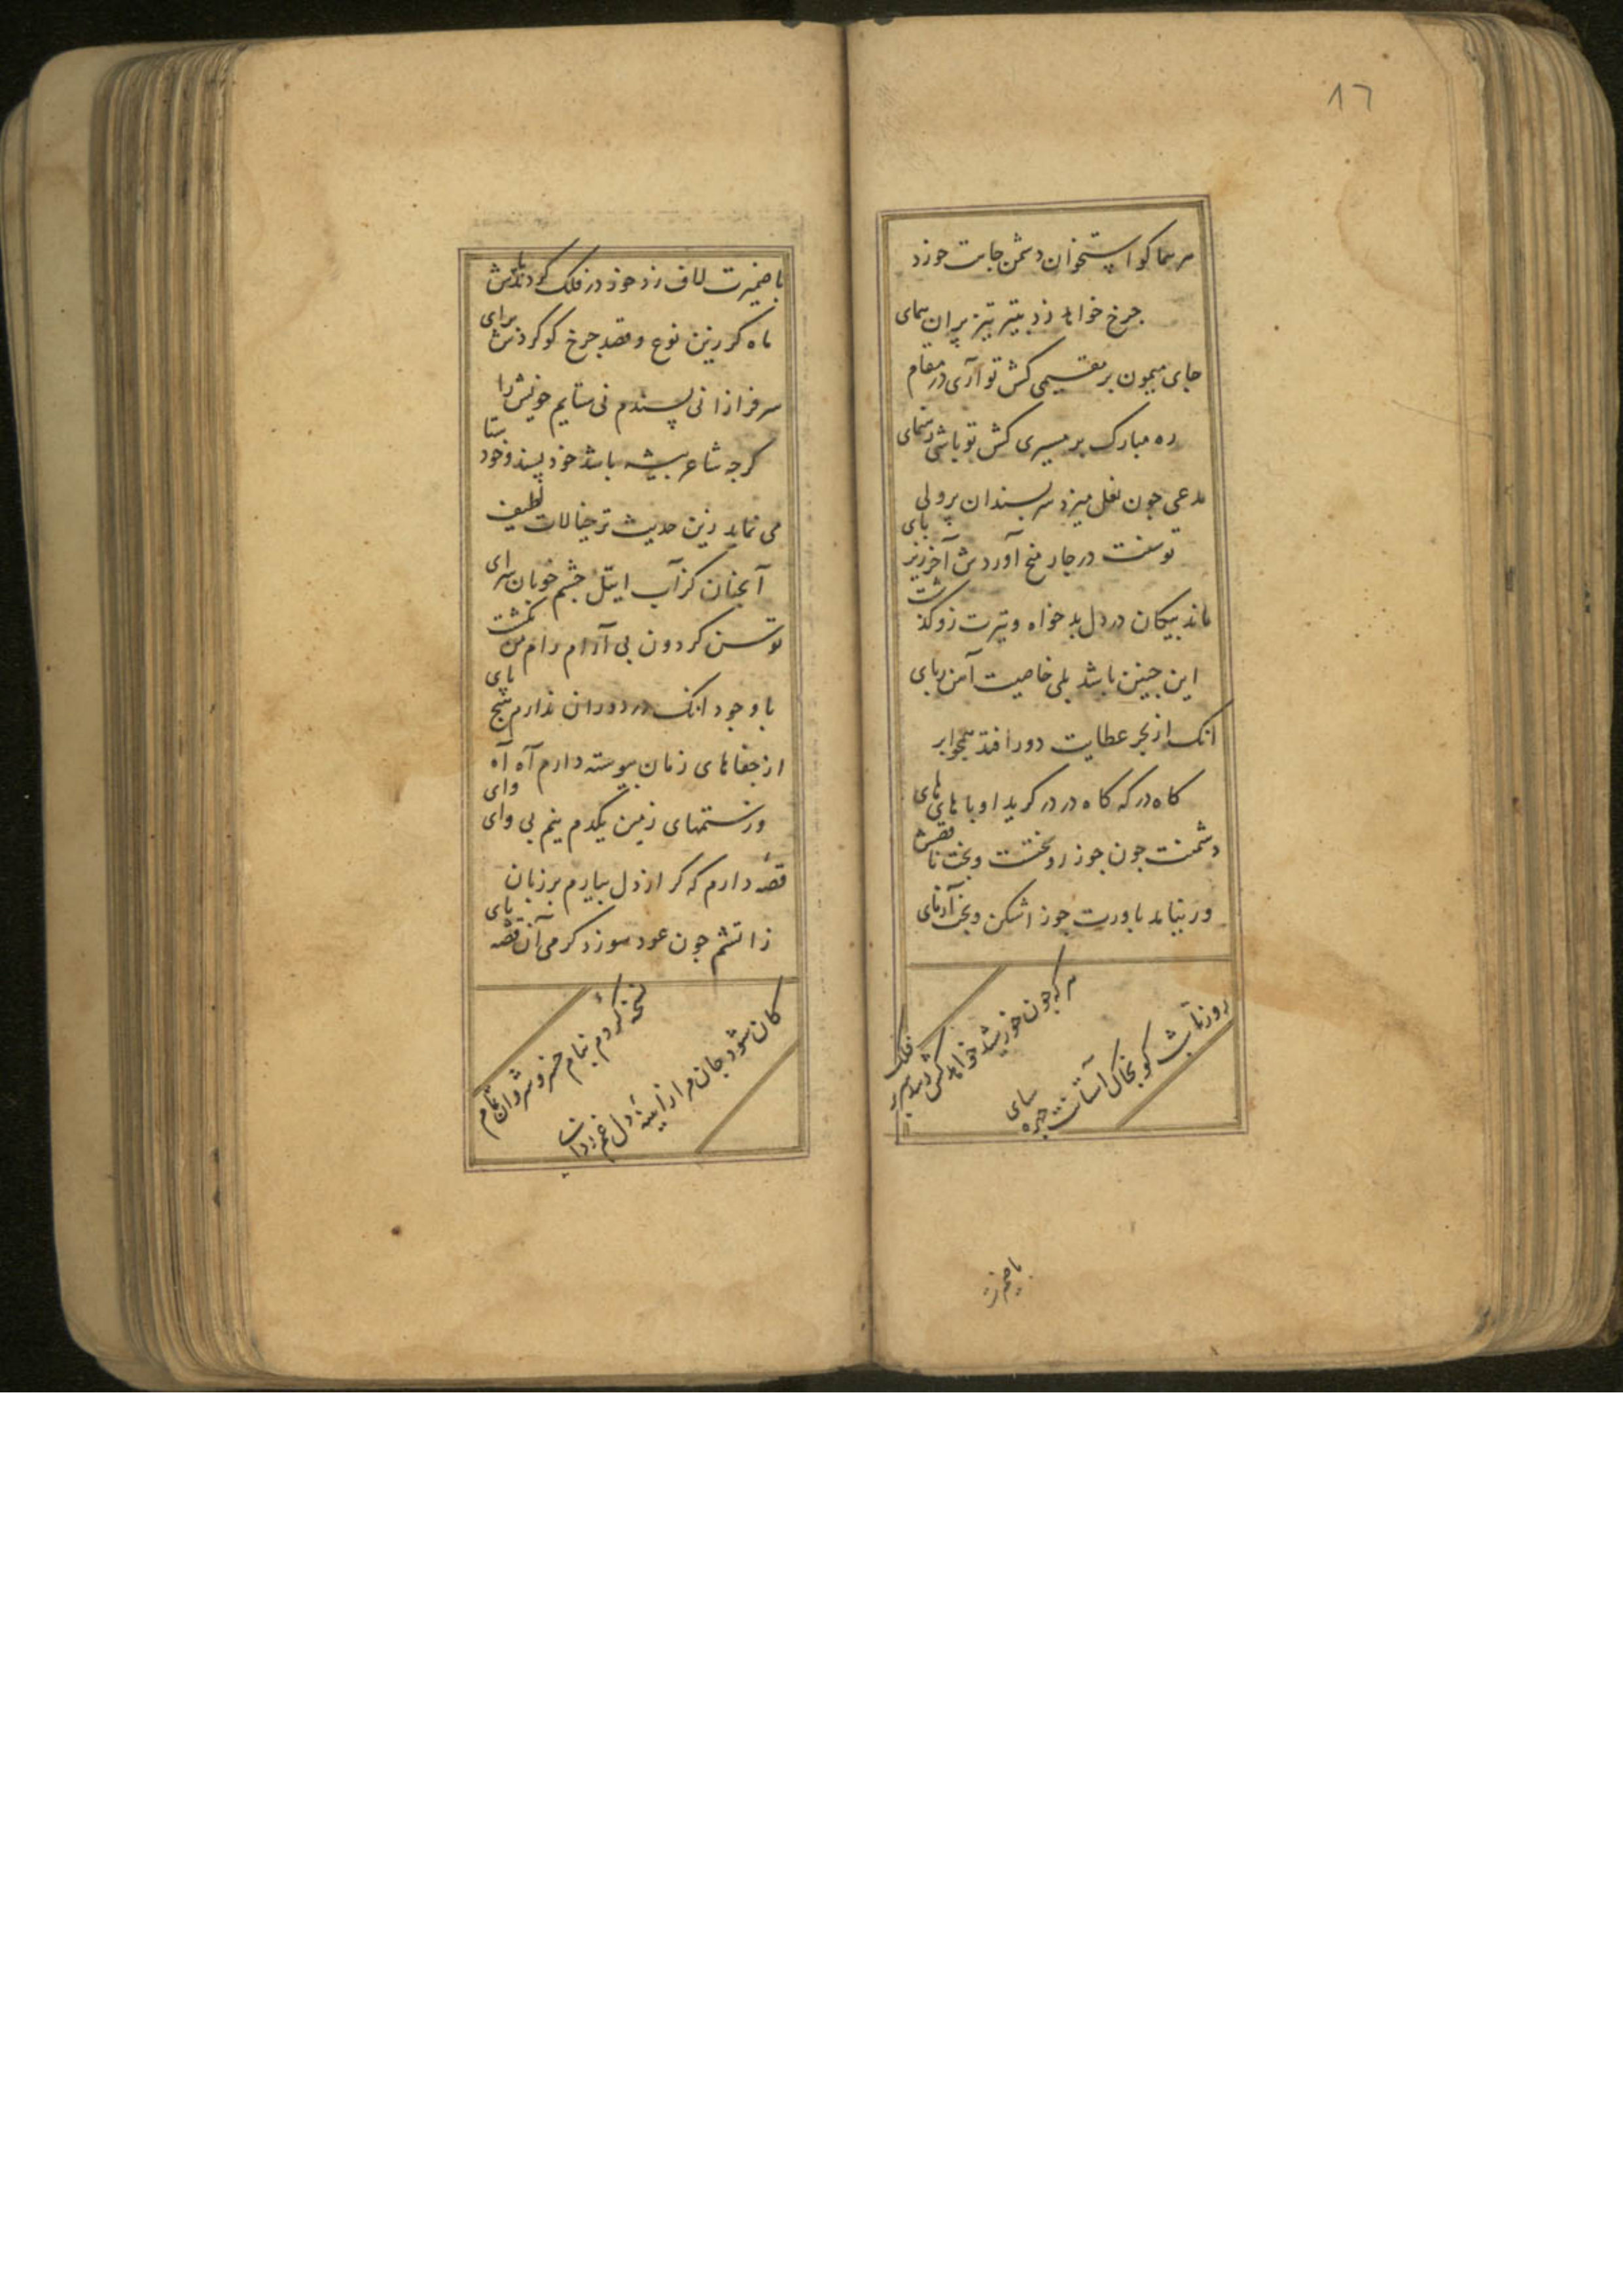 ١٦
هر هما کو استخوان دشمن جاهت خورد
جرخ خواهد زد بتیر تیز پران همای
جای میمون بر مقیمی کش تو آری در مقام
ره مبارک بر مسیری کش تو باشی رهنمای
مدعی جون نعل میزد سربلندان بر ولی
توسنت در جار میخ آوردش آخر زیر بای
ماند بیکان در دل بدخواه و تیرت زو گذشت
این جنین باشد بلی خاصیت آهن ربای
انک از بحر عطایت دور افتد همجو ابر
کاه در که کاه در در کرید او با های های
دشمنت جون جوز
ور نیاید باورت جوز اشکن و
هر که جون خورشید خواهد کش رسد بر سر فلک
روز تا شب کو بخاک آستانت جهره سای
با ضمیرت
با ضمیرت لاف زد خور در فلک
ماه کر زین نوع و قصد جرخ کو کردش برای
سرفرازا نی پسندم نی ستایم خویش را
کرجه شاعر بیشه باشد خود پسند و خود ستا
می نماید زین حدیث تر خیالات لطیف
آنجنان کز آب جشم خوبان سرای
توسن کردون بی آرام رام من نکشت
با وجود انک در دوران ندارم هیج بای
از جفاهای زمان بیوسته دارم آه آه
وز ستمهای زمین یکدم نیم بی وای وای
قصه دارم که کر از دل بیارم بر زبان
ز اتشم جون عود سوزد کرمی آن قصه
ختم کردم بنام خسرو
کان شود جان مرا ز آیینه دل غم زدای